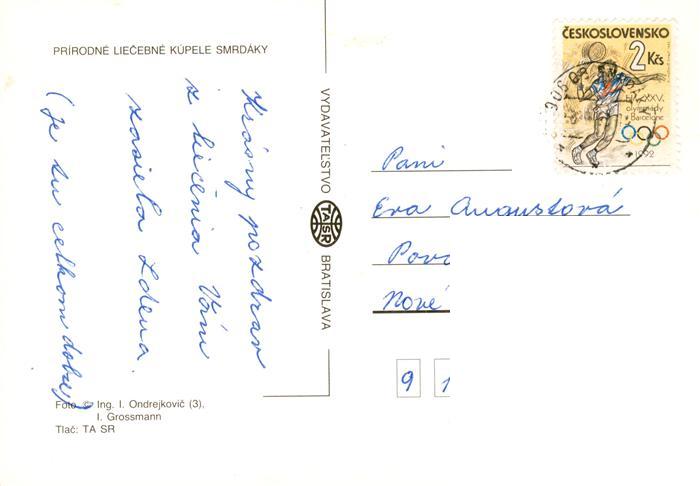 PRÍRODNÉ LIEČEBNÉ KÚPELE SMRDÁKY
Krásny pozdrav
z liečenia Vám
zasiela Zdena.
(je tu celkom dobre)
Foto © Ing. I. Ondrejkovič (3),
I. Grossmann
Tlač: TA SR
VYDAVATEĽSTVO TA SR BRATISLAVA
ČESKOSLOVENSKO
2 Kčs
XXV.
olympiády
v Barceloně
1992
Pani
Eva Augustová
Pov
Nové
9 1